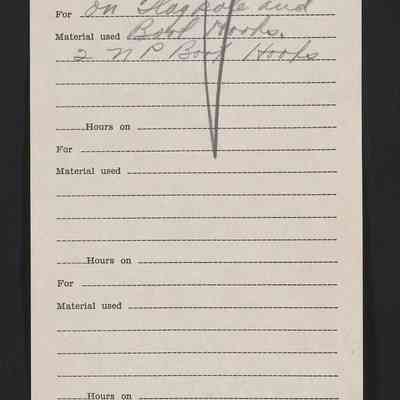 For on Flagpole and
Material used Boat Hooks.
2 N P Boat Hooks
Hours on
For
Material used
Hours on
For
Material used
Hours on